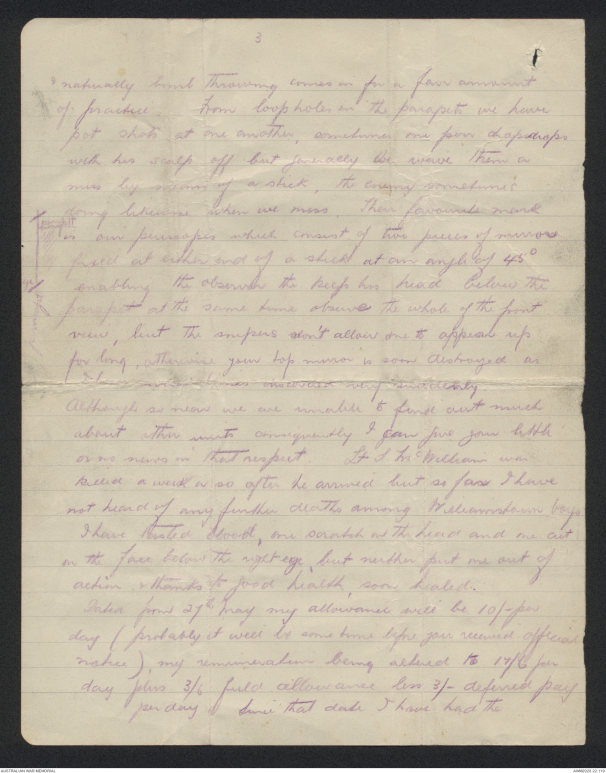 3
naturally bomb throwing comes in for a fair amount
of practice. From loopholes in the parapets we have
pot shots at one another, sometimes one poor chap
with his scalp off but generally we wave them a
miss by means of a stick, the enemy sometimes
doing likewise when we miss. Their favourite mark
is our periscopes which consist of two pieces of mirror
fixed at either end of a stick at an angle of 45°
enabling the observer the keep his head below the
parapet at the same time observe the whole of the front
view, but the snipers don't allow one to appear up
for long, otherwise your top mirror is soon destroyed as
discovered very suddenly
Although so near we are unable to find out much
about other units consequently I can give you little
or no news in that respect. Lt McWilliam was
killed a week or so after he arrived but so far I have
not heard of any further deaths among Williamstown boys
I have tasted blood, one scratch on the head and one cut
on the face below the right eye but neither put me out of
action & thanks to good health, soon healed.
Dated from 27th May my allowance will be 10/- per
day (probably it will be some time before you received official
notice), my remuneration being altered to 17/6 per
day plus 3/6 field allowance less 3/- deferred pay
per day. Since that date I have had the
AUSTRALIAN WAR MEMORIAL